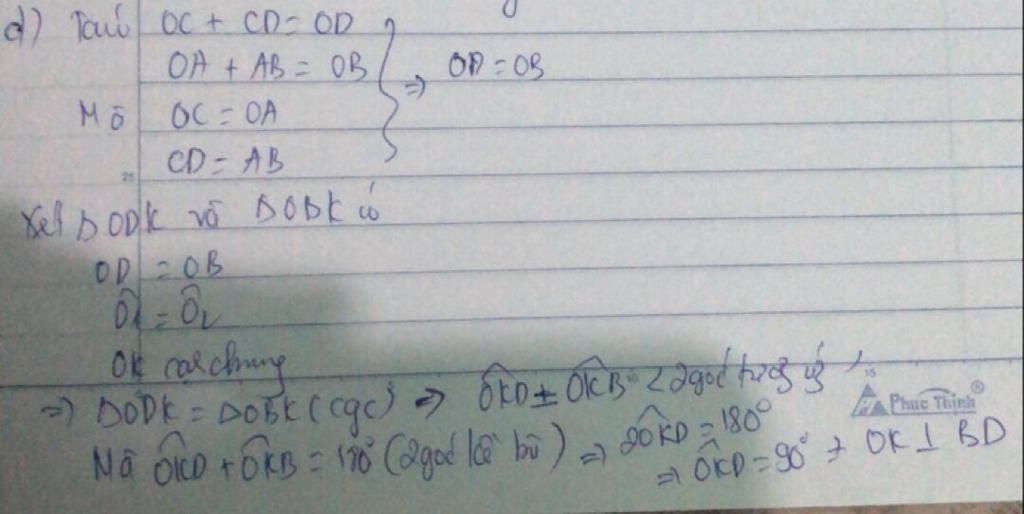 d) Ta có OC + CD = OD
OA + AB = OB
⇒ OD = OB
Mà OC = OA
CD = AB
25
Xét ΔODK và ΔOBK có
OD = OB
Ô1 = Ô2
OK cạnh chung
⇒ ΔODK = ΔOBK (cgc) ⇒ OKD = OKB (2 góc tương ứng)
Mà OKD + OKB = 180° (2 góc kề bù) ⇒ 2OKD = 180°
⇒ OKD = 90° ⇒ OK ⊥ BD
15
Phuc Thinh®